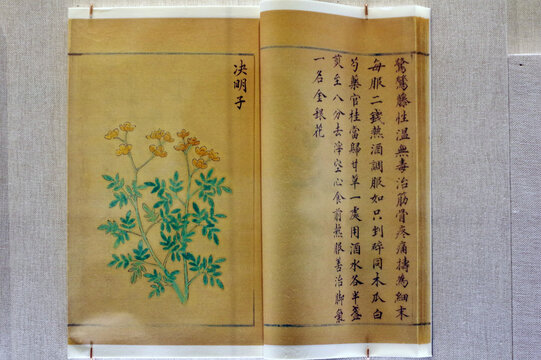 鴛鴦藤性溫無毒治筋骨疼痛擣為細末
每服二錢熱酒調服如只剉碎同木瓜白
芍藥官桂當歸甘草一處用酒水各半盞
煎至八分去滓空心食前熱服善治脚氣
一名金銀花
决明子